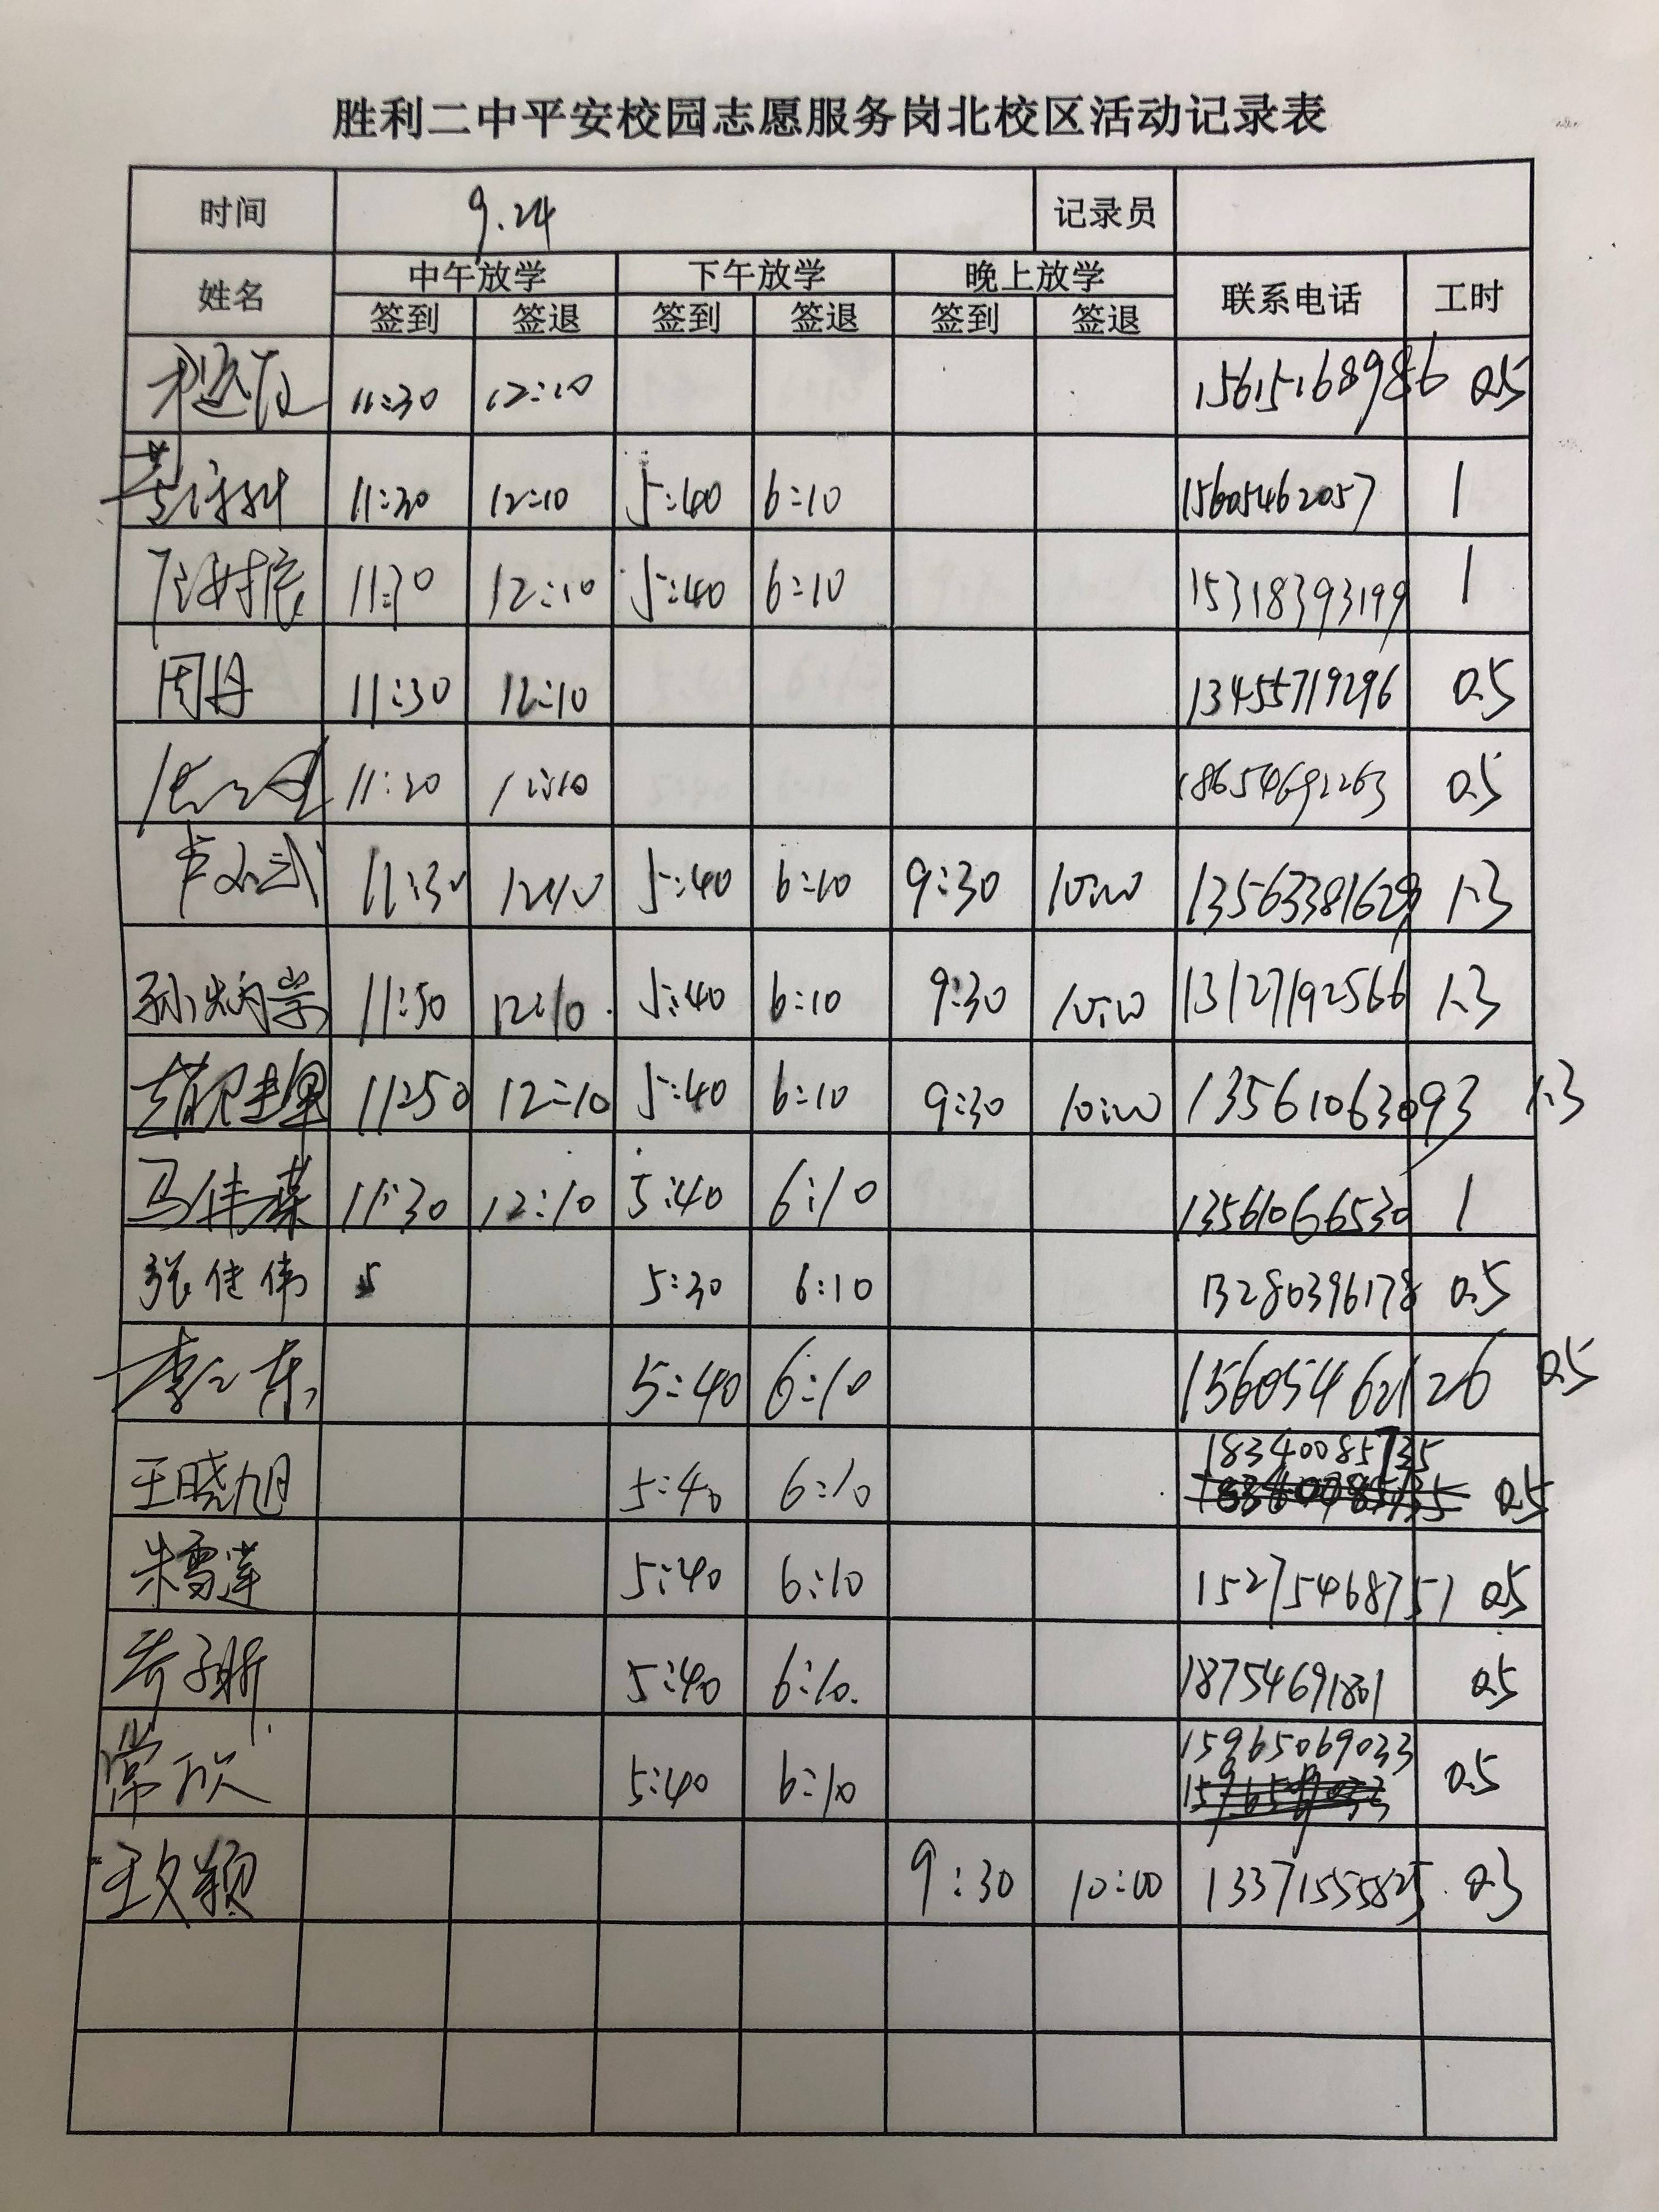 胜利二中平安校园志愿服务岗北校区活动记录表
时间 9.24 记录员
姓名 中午放学 下午放学 晚上放学 联系电话 工时
签到 签退 签到 签退 签到 签退
11:30 12:10 15615168986 0.5
11:30 12:10 5:40 6:10 15605462057 1
11:30 12:10 5:40 6:10 15318393199 1
周丹 11:30 12:10 13455719296 0.5
12:10 18654692263 0.5
卢 11:30 12:10 5:40 6:10 9:30 10:00 13563381629 1.3
孙炳学 11:50 12:10 5:40 6:10 9:30 10:00 13127192566 1.3
11:50 12:10 5:40 6:10 9:30 10:00 13561063093 1.3
马佳 11:30 12:10 5:40 6:10 13561066530 1
张佳伟 5 5:30 6:10 13280396178 0.5
李仁东 5:40 6:10 15605462126 0.5
王晓旭 5:40 6:10 18340085735 0.5
朱雪莲 5:40 6:10 15275468751 0.5
5:40 6:10 18754691801 0.5
常欣 5:40 6:10 15965069033 0.5
王文颖 9:30 10:00 13371555825 0.3